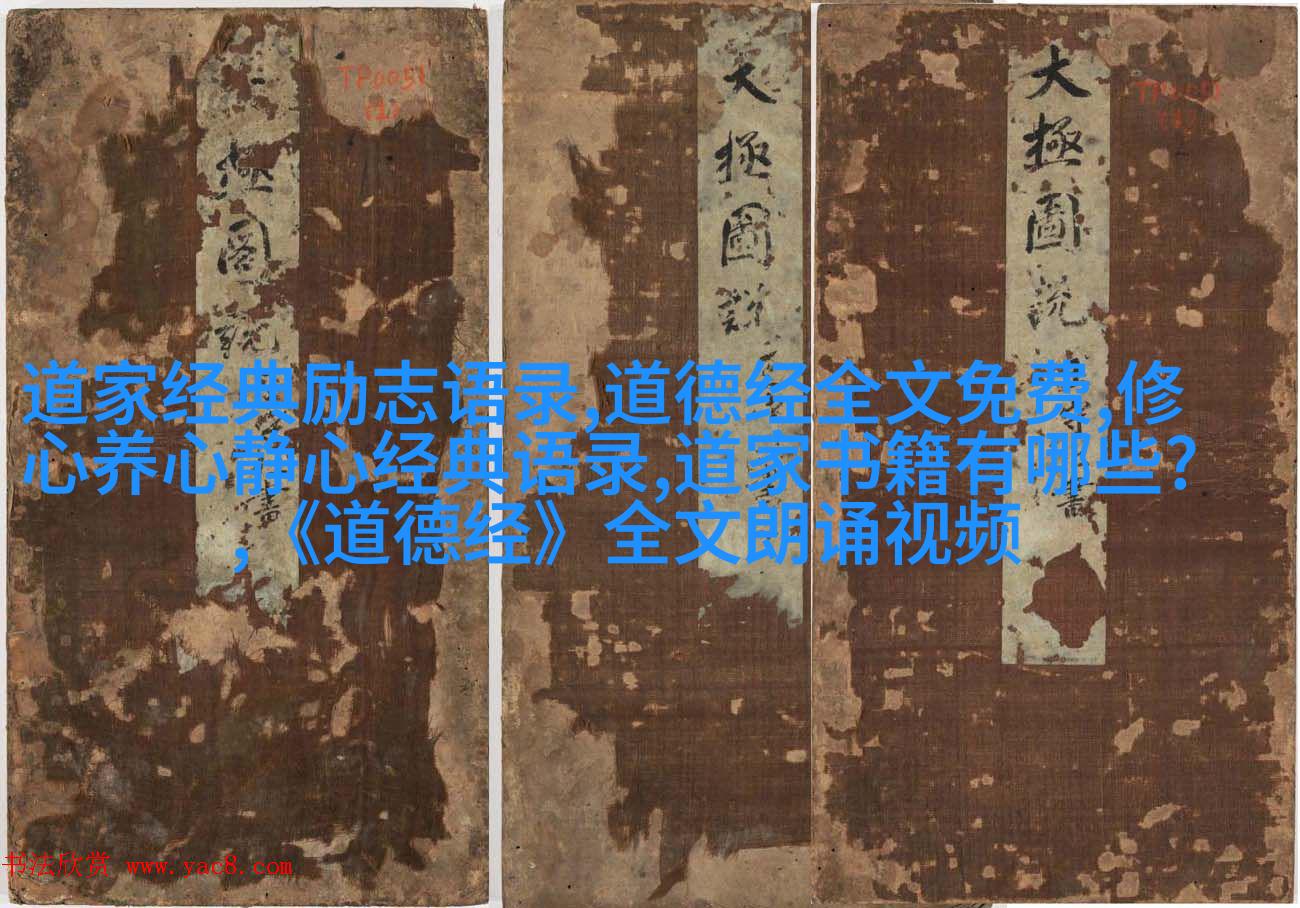 TP0051
(1)
極圖說
大極圖說
大極圖说
道家经典励志语录,道德经全文免费,修
心养心静心经典语录,道家书籍有哪些?
,《道德经》全文朗诵视频
书法欣赏 www.yac8.com